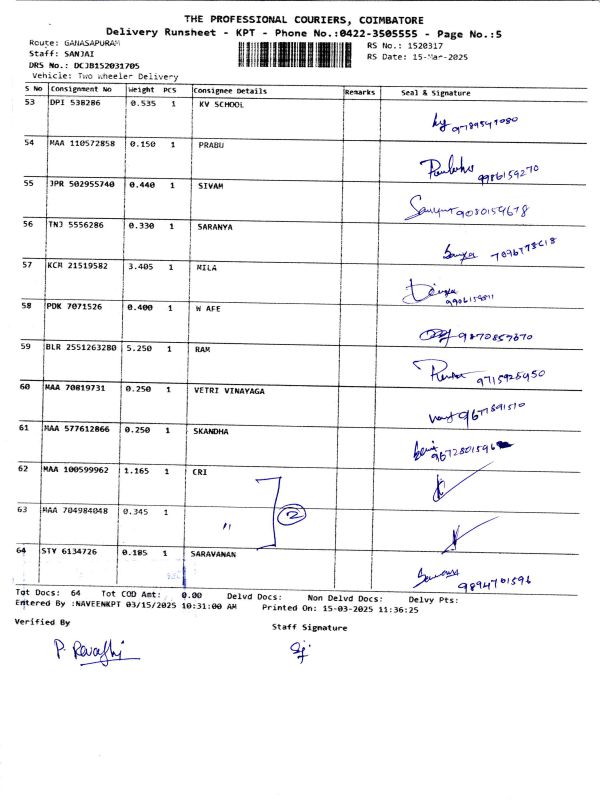 THE PROFESSIONAL COURIERS, COIMBATORE
Delivery Runsheet - KPT - Phone No.:0422-3505555 - Page No.:5
Route: GANASAPURAM RS No.: 1520317
Staff: SANJAI RS Date: 15-Mar-2025
DRS No.: DCJB152031705
Vehicle: Two Wheeler Delivery
S No Consignment No Weight PCS Consignee Details Remarks Seal & Signature
53 DPI 538286 0.535 1 KV SCHOOL
54 MAA 110572858 0.150 1 PRABU
9986159270
55 JPR 502955740 0.440 1 SIVAM
9080159678
56 TNJ 5556286 0.330 1 SARANYA
57 KCM 21519582 3.405 1 MILA
58 PDK 7071526 0.400 1 W AFE
9870857370
59 BLR 2551263280 5.250 1 RAM
9715928950
60 MAA 70819731 0.250 1 VETRI VINAYAGA
61 MAA 577612866 0.250 1 SKANDHA
9672801596
62 MAA 100599962 1.165 1 CRI
2
63 MAA 704984048 0.345 1 "
64 STY 6134726 0.185 1 SARAVANAN
9894701596
Tot Docs: 64 Tot COD Amt: 0.00 Delvd Docs: Non Delvd Docs: Delvy Pts:
Entered By :NAVEENKPT 03/15/2025 10:31:00 AM Printed On: 15-03-2025 11:36:25
Verified By Staff Signature
P. Revathi